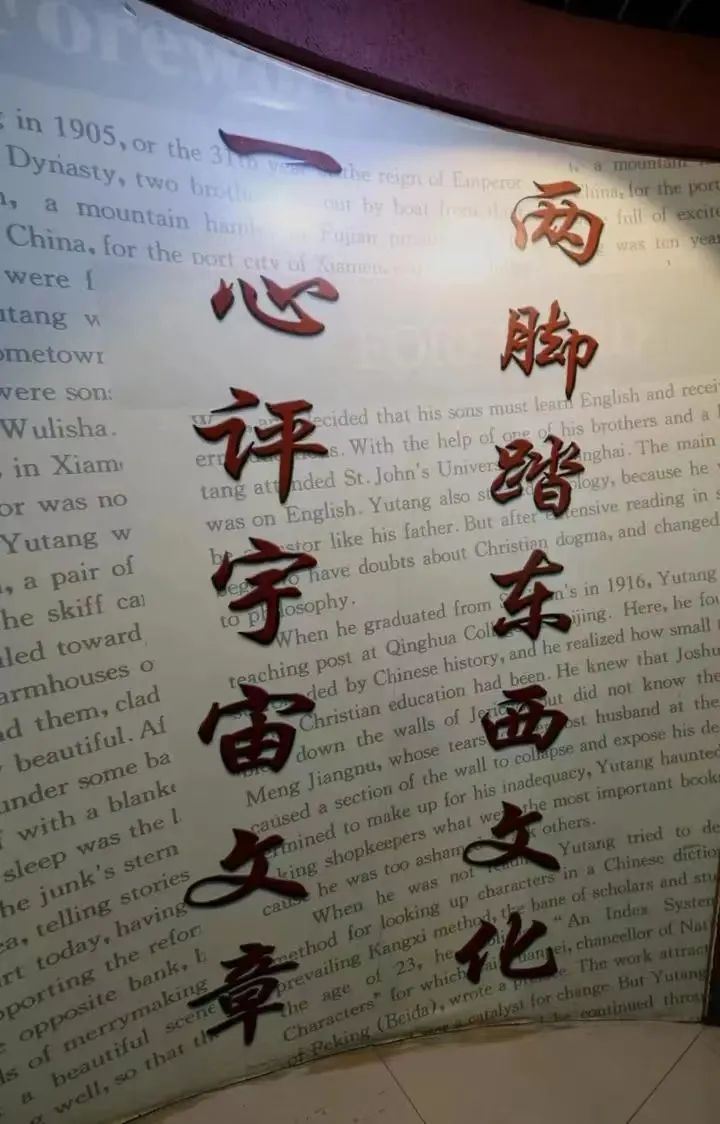 两脚踏东西文化
一心评宇宙文章
Forew
in 1905, or the 31th year the reign of Emperor
Dynasty, two brothe out by boat from th China, for the port
a mountain ham Fujian full of excite
China, for the port city of Xiamen was ten year
were f
utang w
ometown
were sons
Wulisha.
in Xiam
or was no
Yutang w
, a pair of
he skiff ca
led toward
armhouses o
d them, clad
beautiful. Af
under some ba
with a blanke
sleep was the l
he junk's stern
a, telling stories
rt today, having
pporting the refor
opposite bank, l
ls of merrymaking
a beautiful scene
well, so that th
a mountain
decided that his sons must learn English and recei
ern s. With the help of one of his brothers and a
tang attended St. John's Univers nghai. The main
was on English. Yutang also st ology, because he
be stor like his father. But after extensive reading in s
beg to have doubts about Christian dogma, and changed
to philosophy.
When he graduated from S n's in 1916, Yutang
teaching post at Qinghua Coll ijing. Here, he fou
nded by Chinese history, and he realized how small
Christian education had been. He knew that Joshu
down the walls of Jeric but did not know the
Meng Jiangnu, whose tears ost husband at the
caused a section of the wall to collapse and expose his de
ermined to make up for his inadequacy, Yutang haunted
king shopkeepers what were the most important book
cause he was too asham k others.
When he was not Yutang tried to de
method for looking up characters in a Chinese dictio
prevailing Kangxi method, the bane of scholars and stu
the age of 23, he "An Index System
Characters" for which ai uanpei, chancellor of Nat
of Peking (Beida), wrote a preface. The work attrac
a catalyst for change. But Yutang
be continued throu